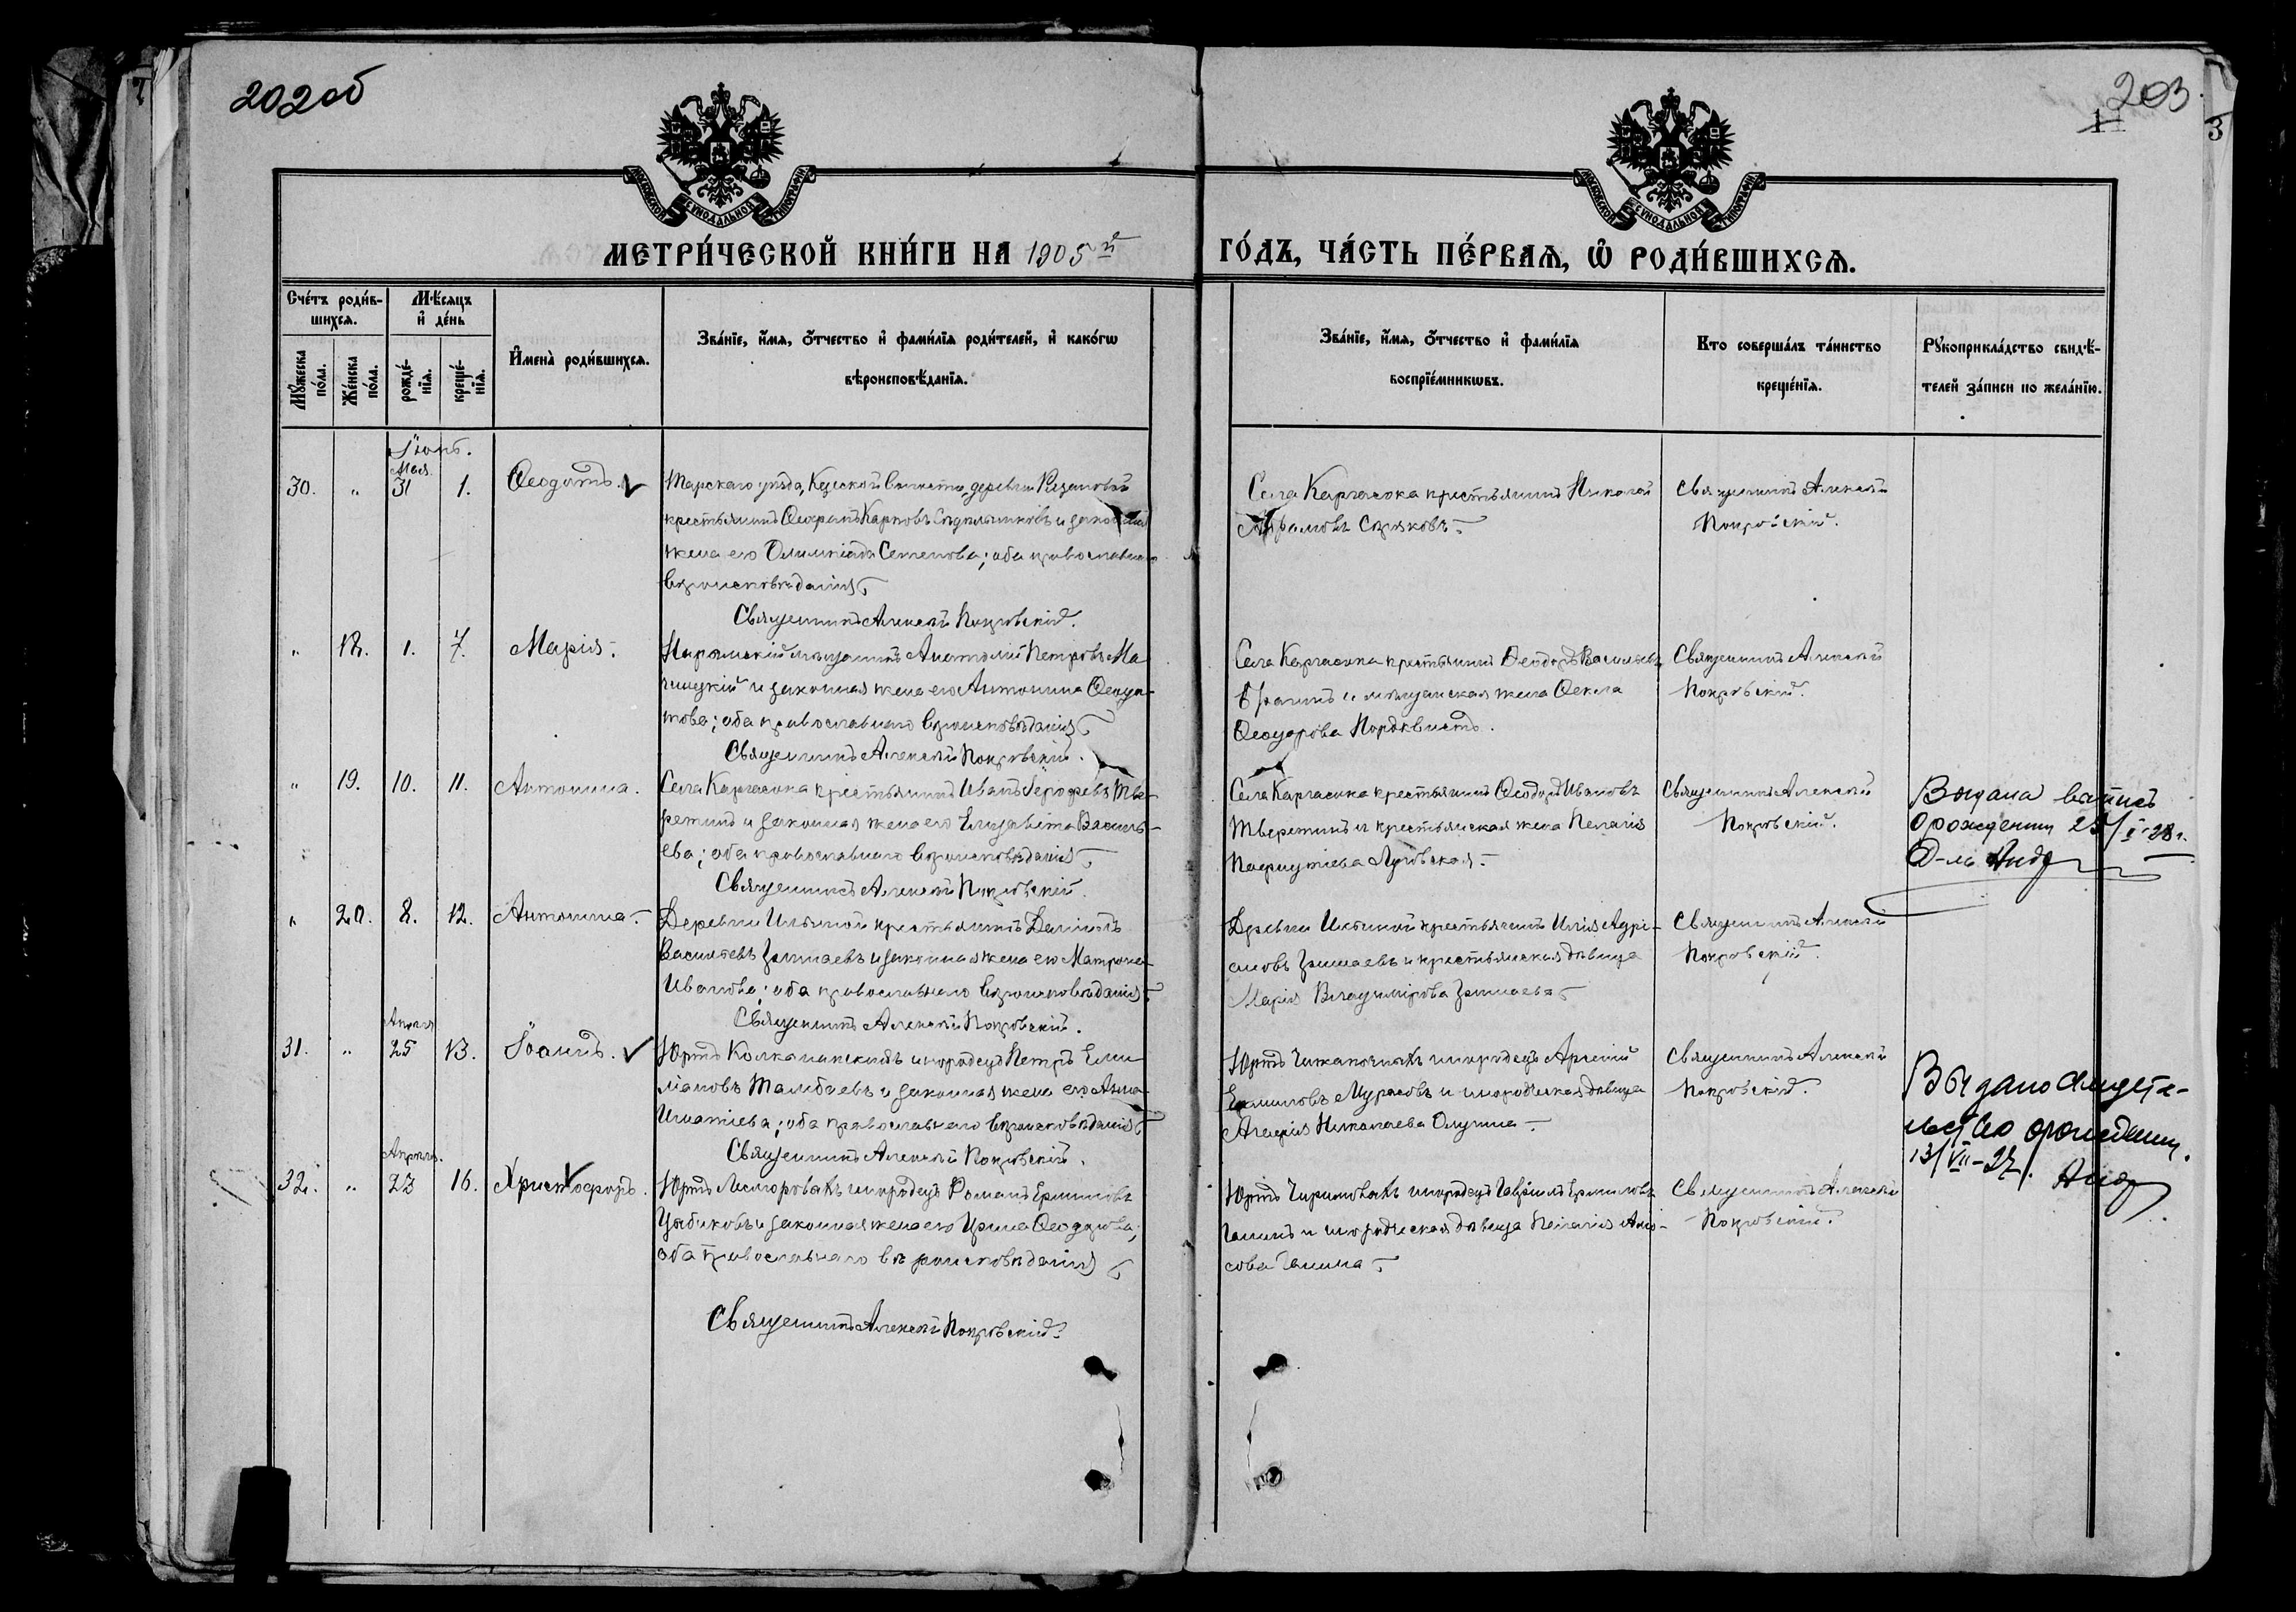 202 об
203
3
МОСКОВСКОЙ СѴНОДАЛЬНОЙ ТИПОГРАФІИ
МОСКОВСКОЙ СѴНОДАЛЬНОЙ ТИПОГРАФІИ
МЕТРИ́ЧЕСКОЙ КНИ́ГИ НА 1905 й
ГО́ДЪ, ЧА́СТЬ ПЕ́РВАѦ, Ѽ РОДИ́ВШИХСѦ.
Сче́тъ роди́в-
шихсѧ.
Мѣ́сѧцъ
и҆ де́нь
Мꙋ́жеска
по́ла.
Же́нска
по́ла.
рожде́-
нїѧ.
креще́-
нїѧ.
И҆мена̀ роди́вшихсѧ.
Зва́нїе, и҆́мѧ, ѻ҆́тчество и҆ фами́лїѧ роди́телей, и҆ како́гѡ
вѣроисповѣ́данїѧ.
Зва́нїе, и҆́мѧ, ѻ҆́тчество и҆ фами́лїѧ
воспрїе́мникѡвъ.
Кто соверша́лъ та́инство
креще́нїѧ.
Рꙋкоприкла́дство свидѣ́-
телей за́писи по жела́нїю.
Іюнь.
Мая
30. " 31 1. Ѳеодотъ.
Тарскаго уѣзда, волости, деревни
крестьянинъ Карповъ и законная
жена его Олимпіада Семенова; оба православнаго
вѣроисповѣданія
Священникъ Алексѣй Покровскій.
Села Каргасока крестьянинъ Николай
Священникъ Алексѣй
Покровскій.
" 18. 1. 7. Марія.
Нарымскій мѣщанинъ Анатолій Петровъ Ма-
и законная жена его Антонина
; оба православнаго вѣроисповѣданія
Священникъ Алексѣй Покровскій.
Села Каргасока крестьянинъ Ѳеодоръ Васильевъ
и мѣщанская жена Ѳекла
Ѳеодорова Нордквистъ.
Священникъ Алексѣй
Покровскій.
" 19. 10. 11. Антонина.
Села Каргасока крестьянинъ Иванъ Іероѳеевъ Тве-
ретинъ и законная жена его Елизавета Василь-
ева; оба православнаго вѣроисповѣданія
Священникъ Алексѣй Покровскій.
Села Каргасока крестьянинъ Ѳеодоръ Ивановъ
Тверетинъ и крестьянская жена Пелагія
Пафнутіева Луговская.
Священникъ Алексѣй
Покровскій.
Выдана выпись
о рожденіи 25/I-28 г.
" 20. 8. 12. Антонина.
Деревни Ильиной крестьянинъ Даніилъ
Васильевъ и законная жена его Матрона
Иванова; оба православнаго вѣроисповѣданія
Священникъ Алексѣй Покровскій.
Деревни Ильиной крестьянинъ Илія Адрі-
ановъ и крестьянская дѣвица
Марія Владимірова
Священникъ Алексѣй
Покровскій.
Апрѣля
31. " 25 13. Іоаннъ.
Юртъ инородецъ Петръ Емил-
іановъ Тамбаевъ и законная жена его Анна
Игнатіева; оба православнаго вѣроисповѣданія
Священникъ Алексѣй Покровскій.
Юртъ инородецъ Арсеній
и инородческая дѣвица
Николаева
Священникъ Алексѣй
Покровскій.
Выдано свидете-
льство о рождении.
13/VII-27 г.
Апрѣля.
32. " 23 16. Христофоръ.
Юртъ инородецъ Романъ Ермиловъ
и законная жена его Ирина Ѳеодорова;
оба православнаго вѣроисповѣданія
Священникъ Алексѣй Покровскій.
Юртъ инородецъ Гавріилъ Ермиловъ
и инородческая дѣвица Пелагія
Священникъ Алексѣй
Покровскій.